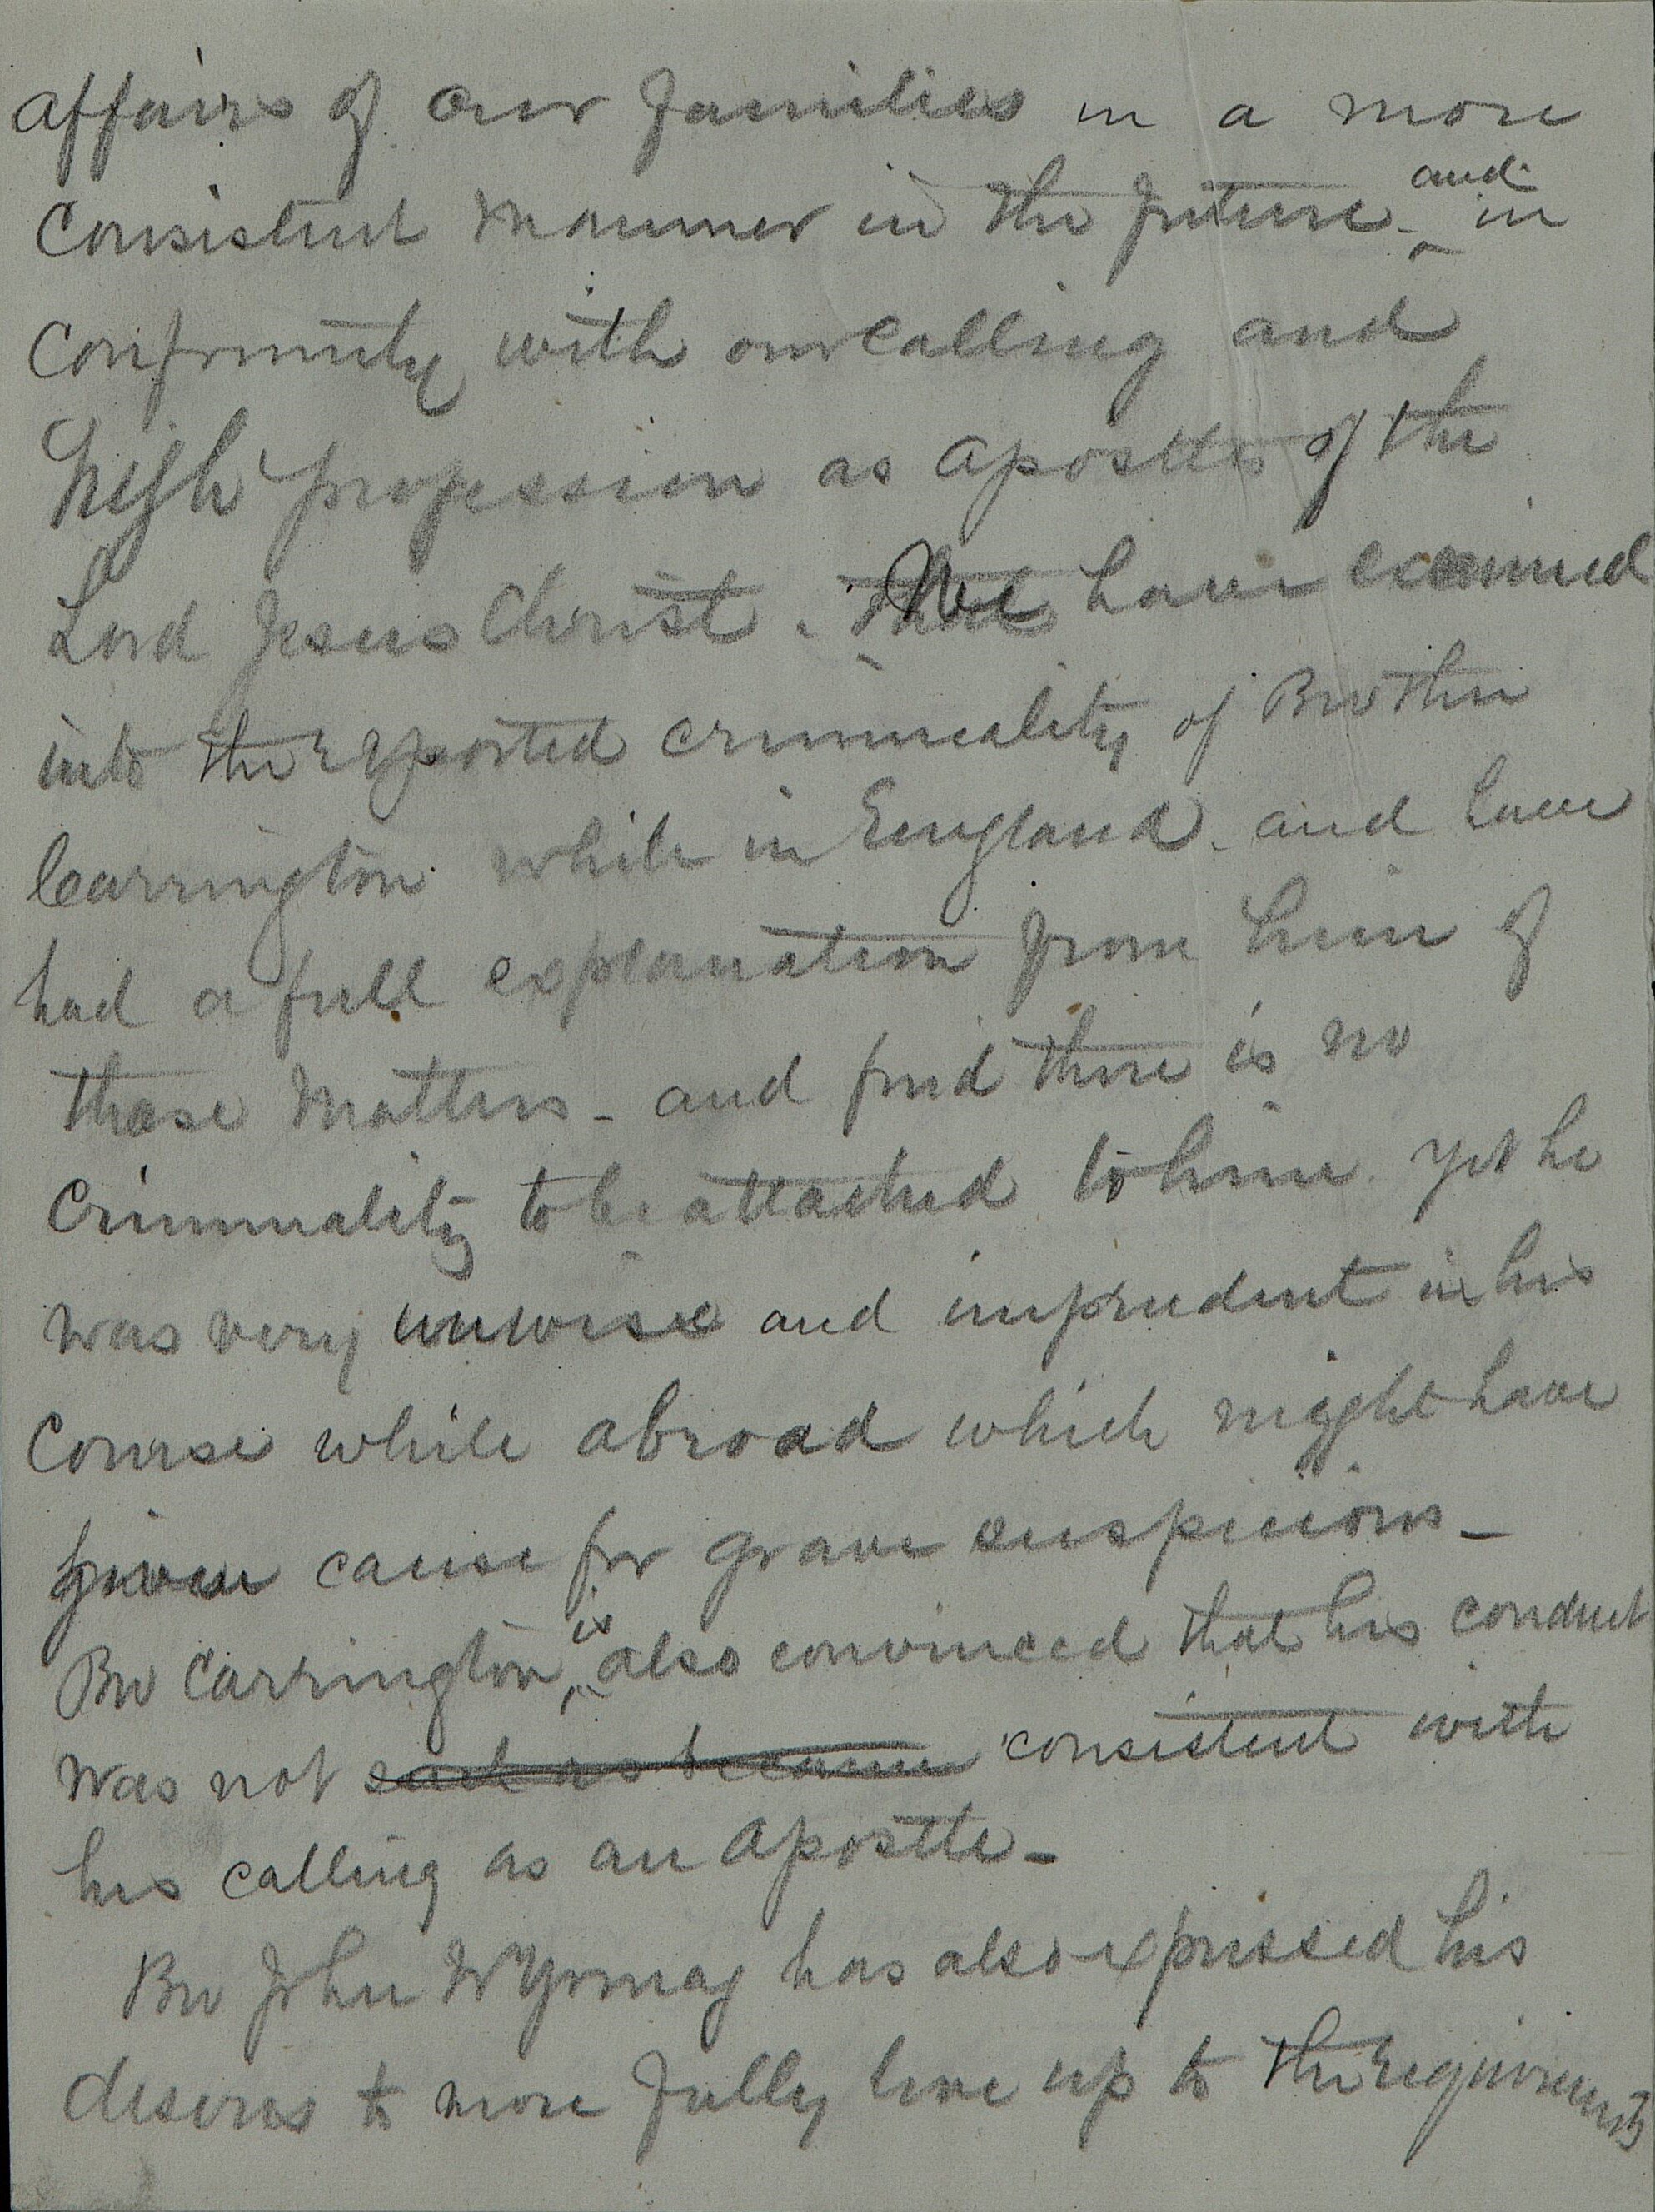 affairs of our families in a more
Consistent Manner in the future - and in
Conformity with our calling and
high profession as apostles of the
Lord Jesus Christ. We have examined
into the reported criminality of Brother
Carrington while in England - and have
had a full explanation from him of
those Matters - and find there is no
Criminality to be attached to him. yet he
was very unwise and imprudent in his
Course while abroad which might have
given cause for grave suspicions -
Bro Carrington is also convinced that his conduct
was not such as became consistent with
his calling as an apostle -
Bro John W Young has also expressed his
desires to more fully live up to the requirements